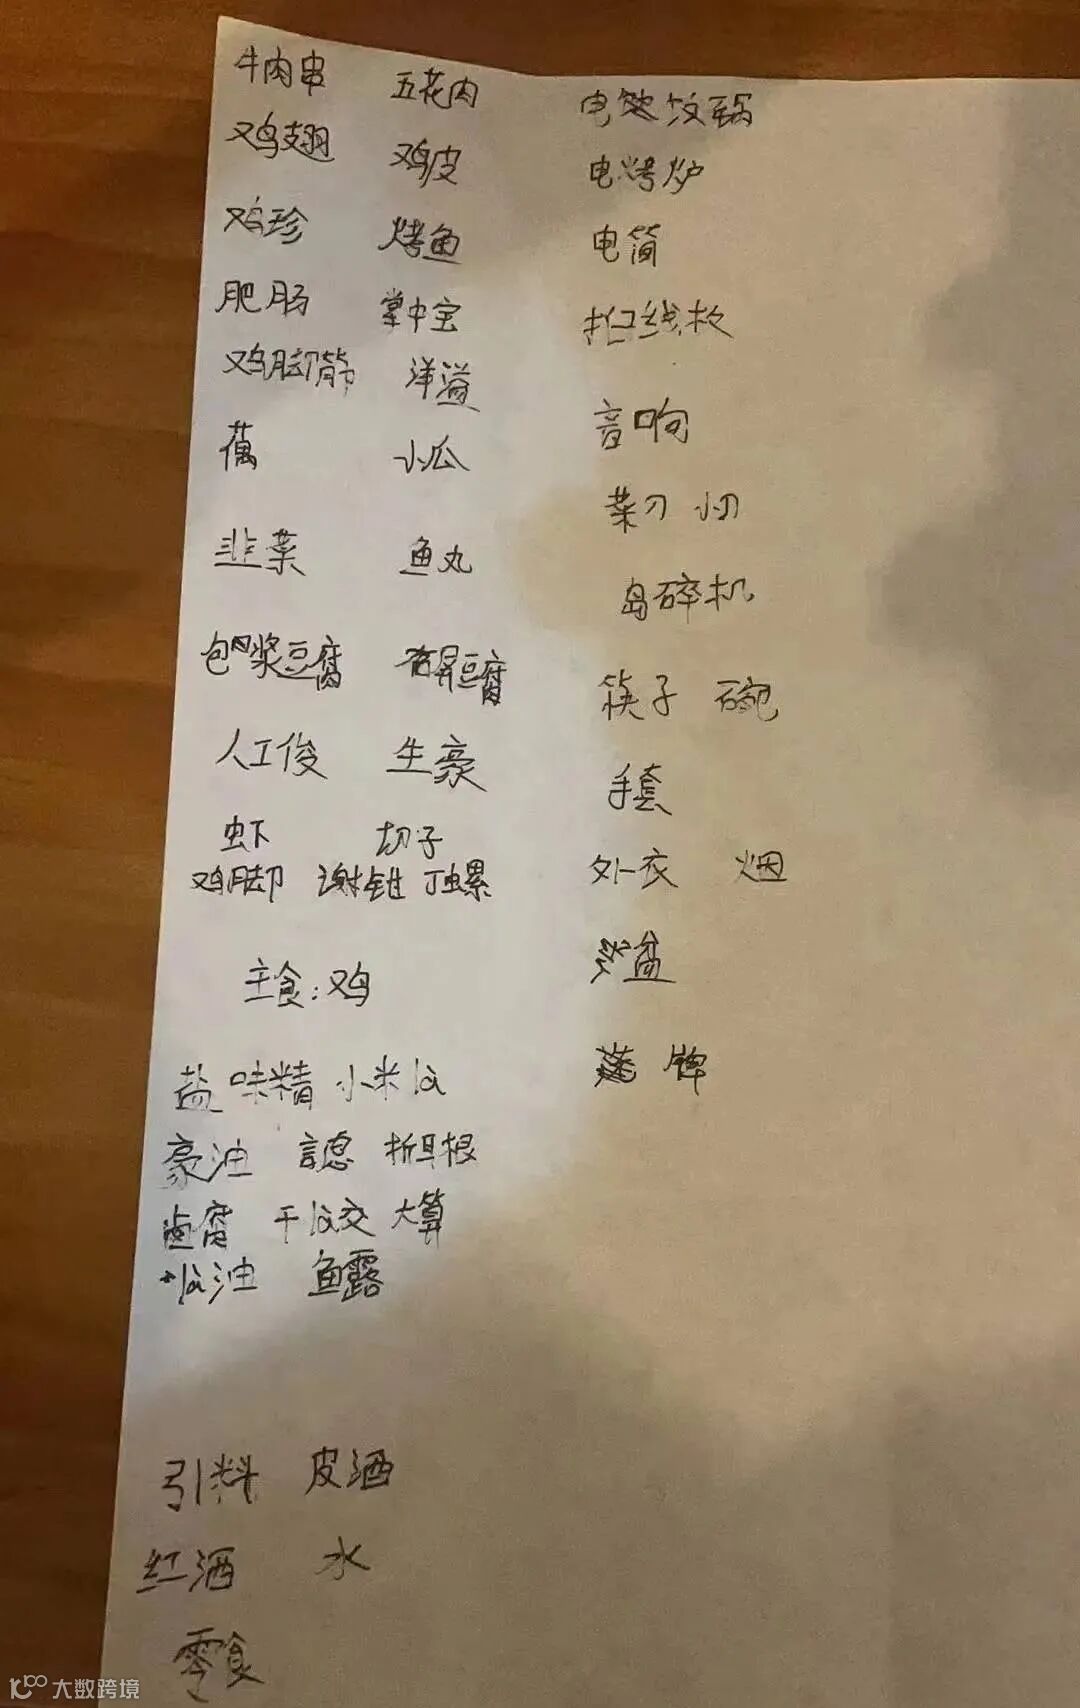 牛肉串 五花肉
鸡翅 鸡皮
鸡珍 烤鱼
肥肠 掌中宝
鸡脚筋 洋溢
藕 小瓜
韭菜 鱼丸
包浆豆腐 豆腐
人工俊 生豪
虾 切子
鸡脚 谢钳 丁螺
主食:鸡
盐 味精 小米
豪油 折耳根
卤腐 干 大算
油 鱼露
引料 皮酒
红酒 水
零食
电 锅
电烤炉
电筒
线
音响
菜刀 小刀
岛碎机
筷子 碗
手套
外衣 烟
盆
牌
大数跨境